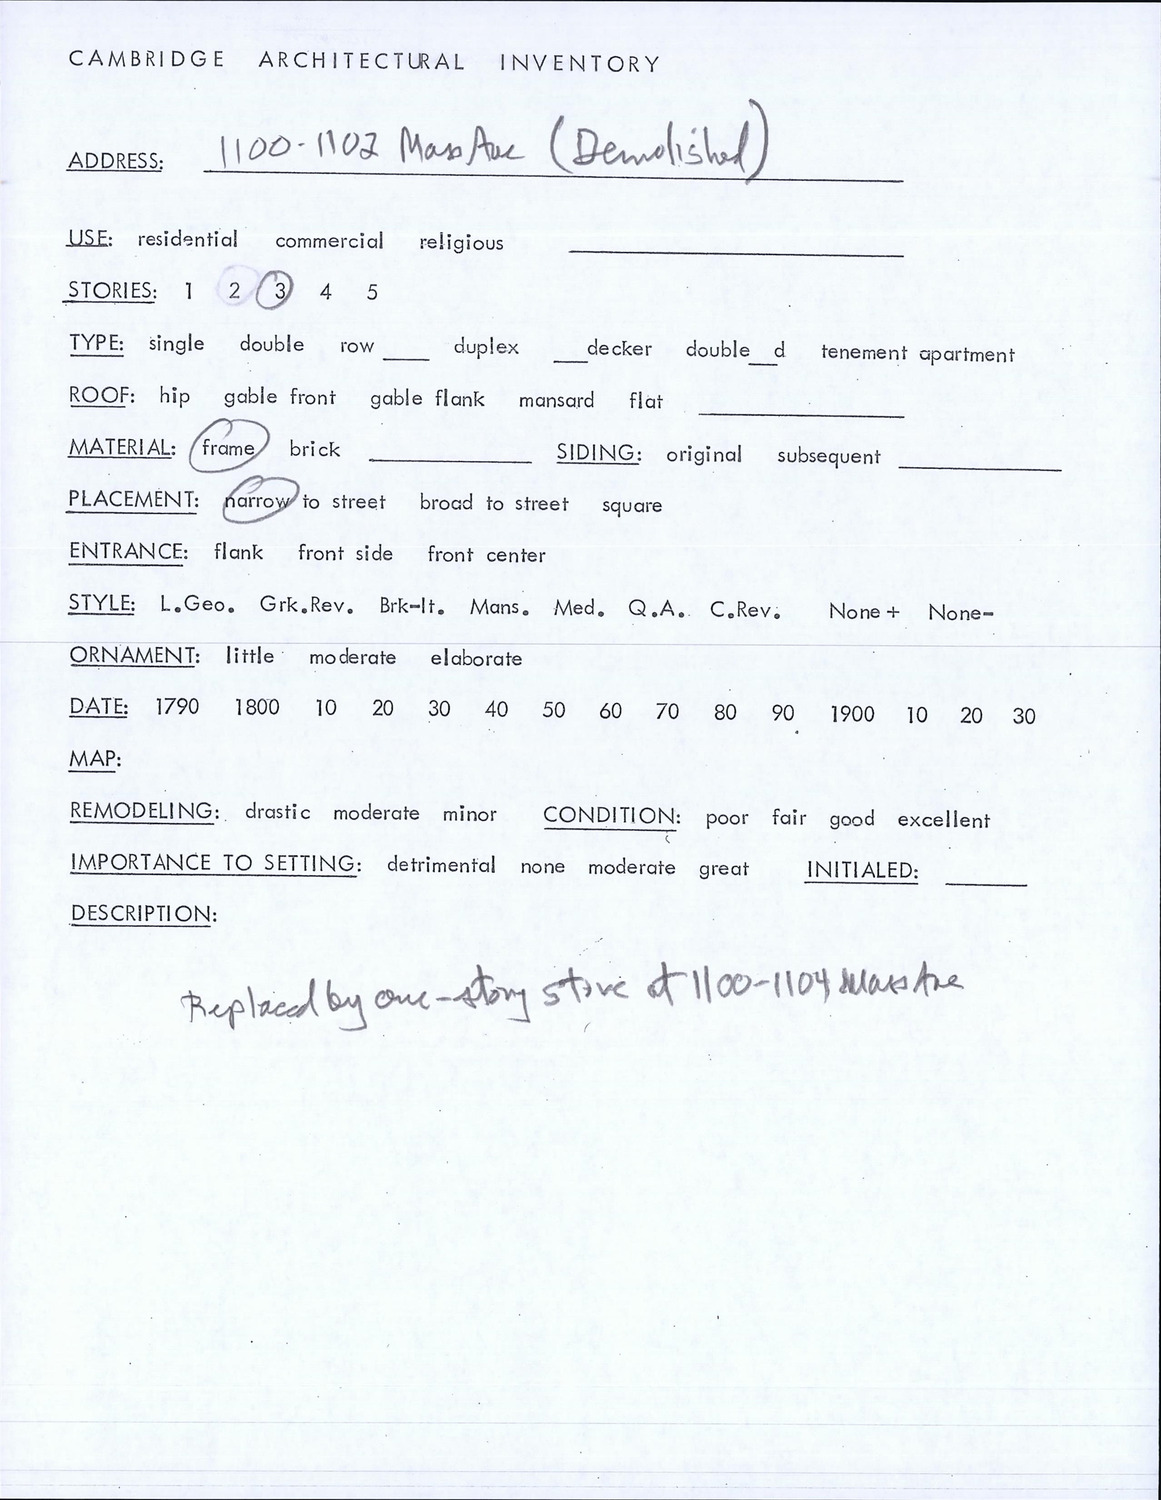 CAMBRIDGE ARCHITECTURAL INVENTORY
ADDRESS: 1100-1102 Mass Ave (Demolished)
USE: residential commercial religious ____
STORIES: 1 2 3 4 5
TYPE: single double row ___ duplex ___decker double__d tenement apartment
ROOF: hip gable front gable flank mansard flat ____
MATERIAL: frame brick ____ SIDING: original subsequent ____
PLACEMENT: narrow to street broad to street square
ENTRANCE: flank front side front center
STYLE: L.Geo. Grk.Rev. Brk-It. Mans. Med. Q.A. C.Rev. None+ None-
ORNAMENT: little moderate elaborate
DATE: 1790 1800 10 20 30 40 50 60 70 80 90 1900 10 20 30
MAP:
REMODELING: drastic moderate minor CONDITION: poor fair good excellent
IMPORTANCE TO SETTING: detrimental none moderate great INITIALED: ____
DESCRIPTION:
Replaced by one-story store at 1100-1104 Mass Ave